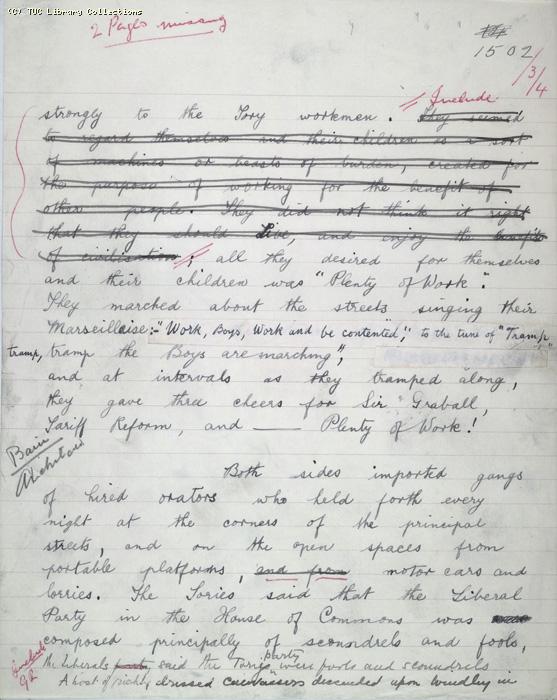 (C) TUC Library Collections
2 Pages missing
1502
3/4
Include
strongly to the Tory workmen. They seemed
to regard themselves and their children as a sort
of machines or beasts of burden, created for
the purpose of working for the benefit of
other people. They did not think it right
that they should Live, and enjoy the benefits
of civilisation; all they desired for themselves
and their children was "Plenty of Work".
They marched about the streets singing their
Marseillaise: "Work, Boys, Work and be contented," to the tune of "Tramp
tramp, tramp the Boys are marching",
and at intervals as they tramped along,
they gave three cheers for Sir Graball,
Tariff Reform, and — Plenty of Work!
Both sides imported gangs
of hired orators who held forth every
night at the corners of the principal
streets, and on the open spaces from
portable platforms, and from motor cars and
lorries. The Tories said that the Liberal
Party in the House of Commons was
composed principally of scoundrels and fools,
the Liberals said the Tory party were fools and scoundrels
A host of richly dressed canvassers descended upon Windley in
Bain
include